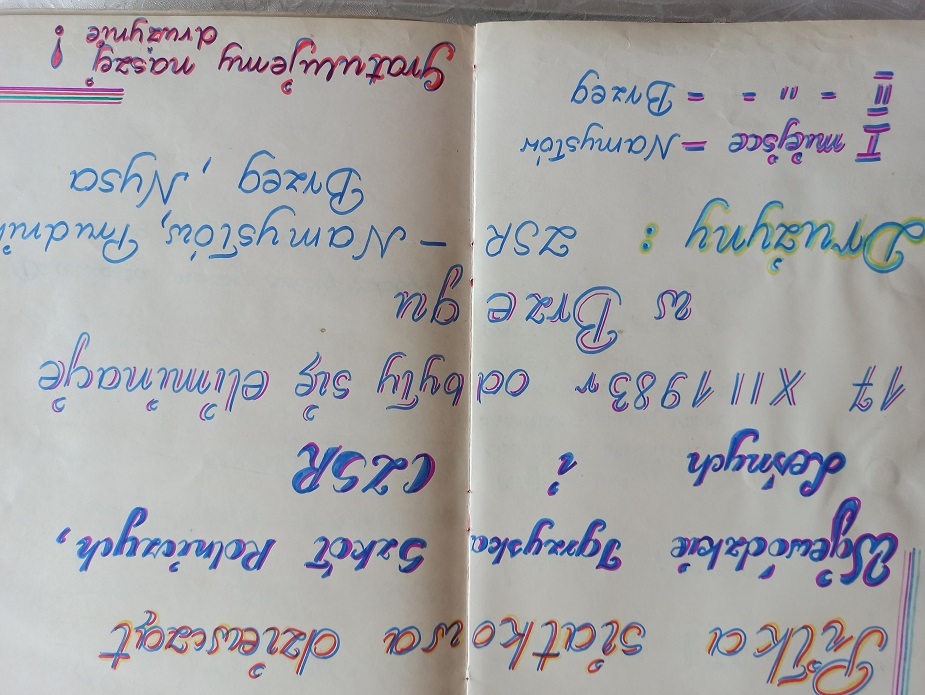 Piłka siatkowa dziewcząt
Wojewódzkie Igrzyska Szkół Rolniczych,
Leśnych i CZSR
17 XII 1983r odbyły się eliminacje
w Brzegu
Drużyny: ZSR - Namysłów, Prudnik
Brzeg, Nysa
I miejsce - Namysłów
II = " = = Brzeg
Gratulujemy naszej
drużynie !